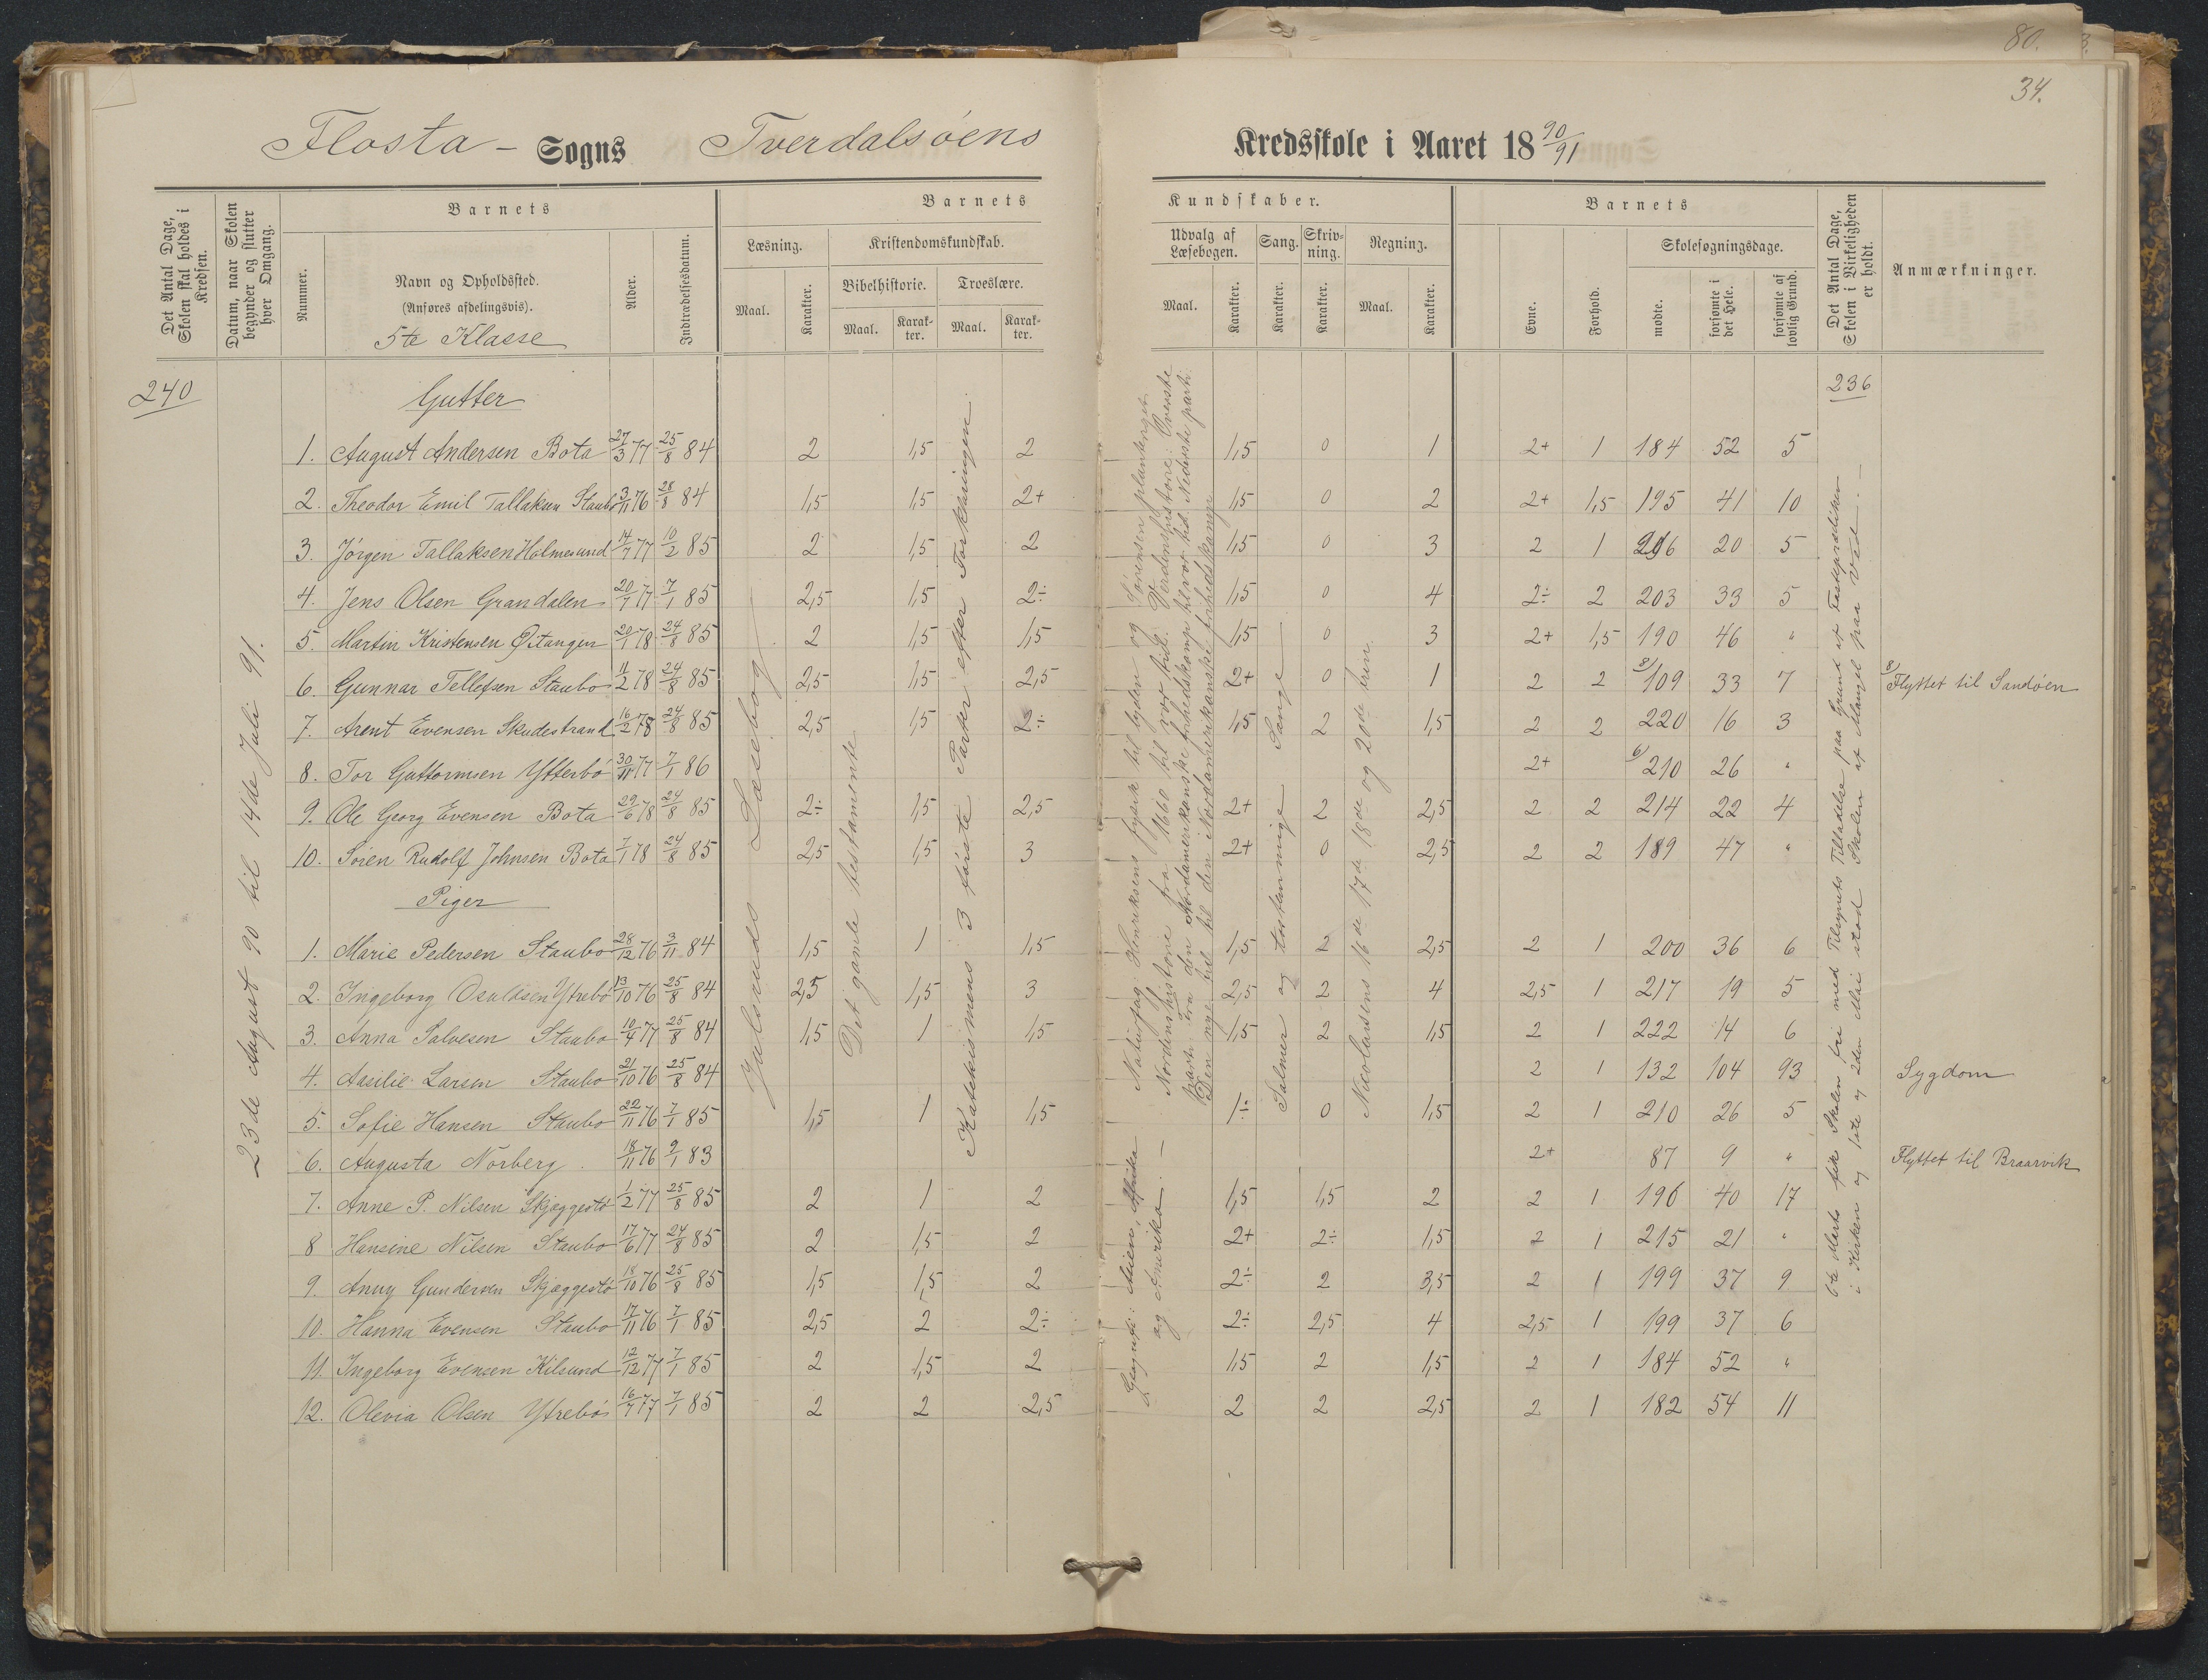 80.
34.
Flosta - Sogns Tverdalsøens Kredsskole i Aaret 18 90/91
Det Antal Dage, Skolen skal holdes i Kredsen.
Datum, naar Skolen begynder og slutter hver Omgang.
Barnets
Nummer.
Navn og Opholdssted.
(Anføres afdelingsvis).
5te Klasse
Alder.
Indtrædelsesdatum.
Barnets Kundskaber.
Læsning.
Maal.
Karakter.
Kristendomskundskab.
Bibelhistorie.
Maal.
Karakter.
Troeslære.
Maal.
Karakter.
Udvalg af Læsebogen.
Maal.
Karakter.
Sang.
Karakter.
Skrivning.
Karakter.
Regning.
Maal.
Karakter.
Barnets
Evne.
Forhold.
Skolesøgningsdage.
mødte.
forsømte i det Hele.
forsømte af lovlig Grund.
Det Antal Dage, Skolen i Virkeligheden er holdt.
Anmærkninger.
240
236
23de August 90 til 14de Juli 91.
Gutter
1. August Andersen Bota 27/3 77 25/8 84 2 1,5 2 1,5 0 1 2+ 1 184 52 5
2. Theodor Emil Tallaksen Staubø 3/11 76 28/8 84 1,5 1,5 2+ 1,5 0 2 2+ 1,5 195 41 10
3. Jørgen Tallaksen Holmesund 14/7 77 10/2 85 2 1,5 2 1,5 0 3 2 1 20 5
4. Jens Olsen Grandalen 20/7 77 7/1 85 2,5 1,5 2÷ 1,5 0 4 2÷ 2 203 33 5
5. Martin Kristensen 20/1 78 24/8 85 2 1,5 1,5 1,5 0 3 2+ 1,5 190 46 "
6. Gunnar Tellefsen Staubø 11/2 78 24/8 85 2,5 1,5 2,5 2+ 0 1 2 2 109 33 7 Flyttet til Sandøen
7. Arent Evensen Skudestrand 16/2 78 24/8 85 2,5 1,5 2÷ 1,5 2 1,5 2 2 220 16 3
8. Tor Guttormsen Ytterbø 30/11 77 7/1 86 2+ 210 26 "
9. Ole Georg Evensen Bota 29/6 78 24/8 85 2÷ 1,5 2,5 2+ 2 2,5 2 2 214 22 4
10. Søren Rudolf Johnsen Bota 7/1 78 24/8 85 2,5 1,5 3 2+ 0 2,5 2 2 189 47 "
Piger
1. Marie Pedersen Staubo 28/12 76 3/11 84 1,5 1 1,5 1,5 2 2,5 2 1 200 36 6
2. Ingeborg Osuldsen Ytrebø 13/10 76 25/8 84 2,5 1,5 3 2,5 2 4 2,5 1 217 19 5
3. Anna Salvesen Staubo 10/4 77 25/8 84 1,5 1 1,5 1,5 2 1,5 2 1 222 14 6
4. Aasilie Larsen Staubo 21/10 76 25/8 84 2 1 132 104 93 Sygdom
5. Sofie Hansen Staubo 22/11 76 7/1 85 1,5 1 1,5 1÷ 0 1,5 2 1 210 26 5
6. Augusta Norberg 18/11 76 9/1 83 2+ 87 9 " Flyttet til Braarvik
7. Anne P. Nilsen Skjæggestø 1/2 77 25/8 85 2 1 2 1,5 1,5 2 2 1 196 40 17
8 Hansine Nilsen Staubo 17/6 77 24/8 85 2 1,5 2 2+ 2÷ 1,5 2 1 215 21 "
9. Anny Gundersen Skjæggestø 18/10 76 25/8 85 1,5 1,5 2 2÷ 2 3,5 2 1 199 37 9
10. Hanna Evensen Staubo 17/11 76 7/1 85 2,5 2 2÷ 2÷ 2,5 4 2,5 1 199 37 6
11. Ingeborg Evensen Kilsund 12/12 77 7/1 85 2 1,5 2 1,5 2 1,5 2 1 184 52 "
12. Olevia Olsen Ytrebø 16/7 77 7/1 85 2 2 2,5 2 2 2,5 2 1 182 54 11
Julsruds Læsebog
Det gamle testamente
Katekismens 3 første Parter efter Forklaringen.
Naturfag Henriksens fysik til lyden og Sørensen planteriget
Nordenshistorie fra 1660 til vor tid. Verdenshistorie: Øverste
parti fra den Nordamerikanske frihedskamp til vor tid. Nederste parti:
Den nye tid til den Nordamerikanske frihedskamp
Geografi: Asien, Afrika
og Amerika. —
Salmer og trestemmige Sange
Nicolaisens 16de 17de 18de og 20de trin
6te Marts fik Skolen fri med Tilsynets Tilladelse paa Grund af Fasteprædiken
i Kirken og 1ste og 2den Mai stod Skolen af Mangel paa Ved. —